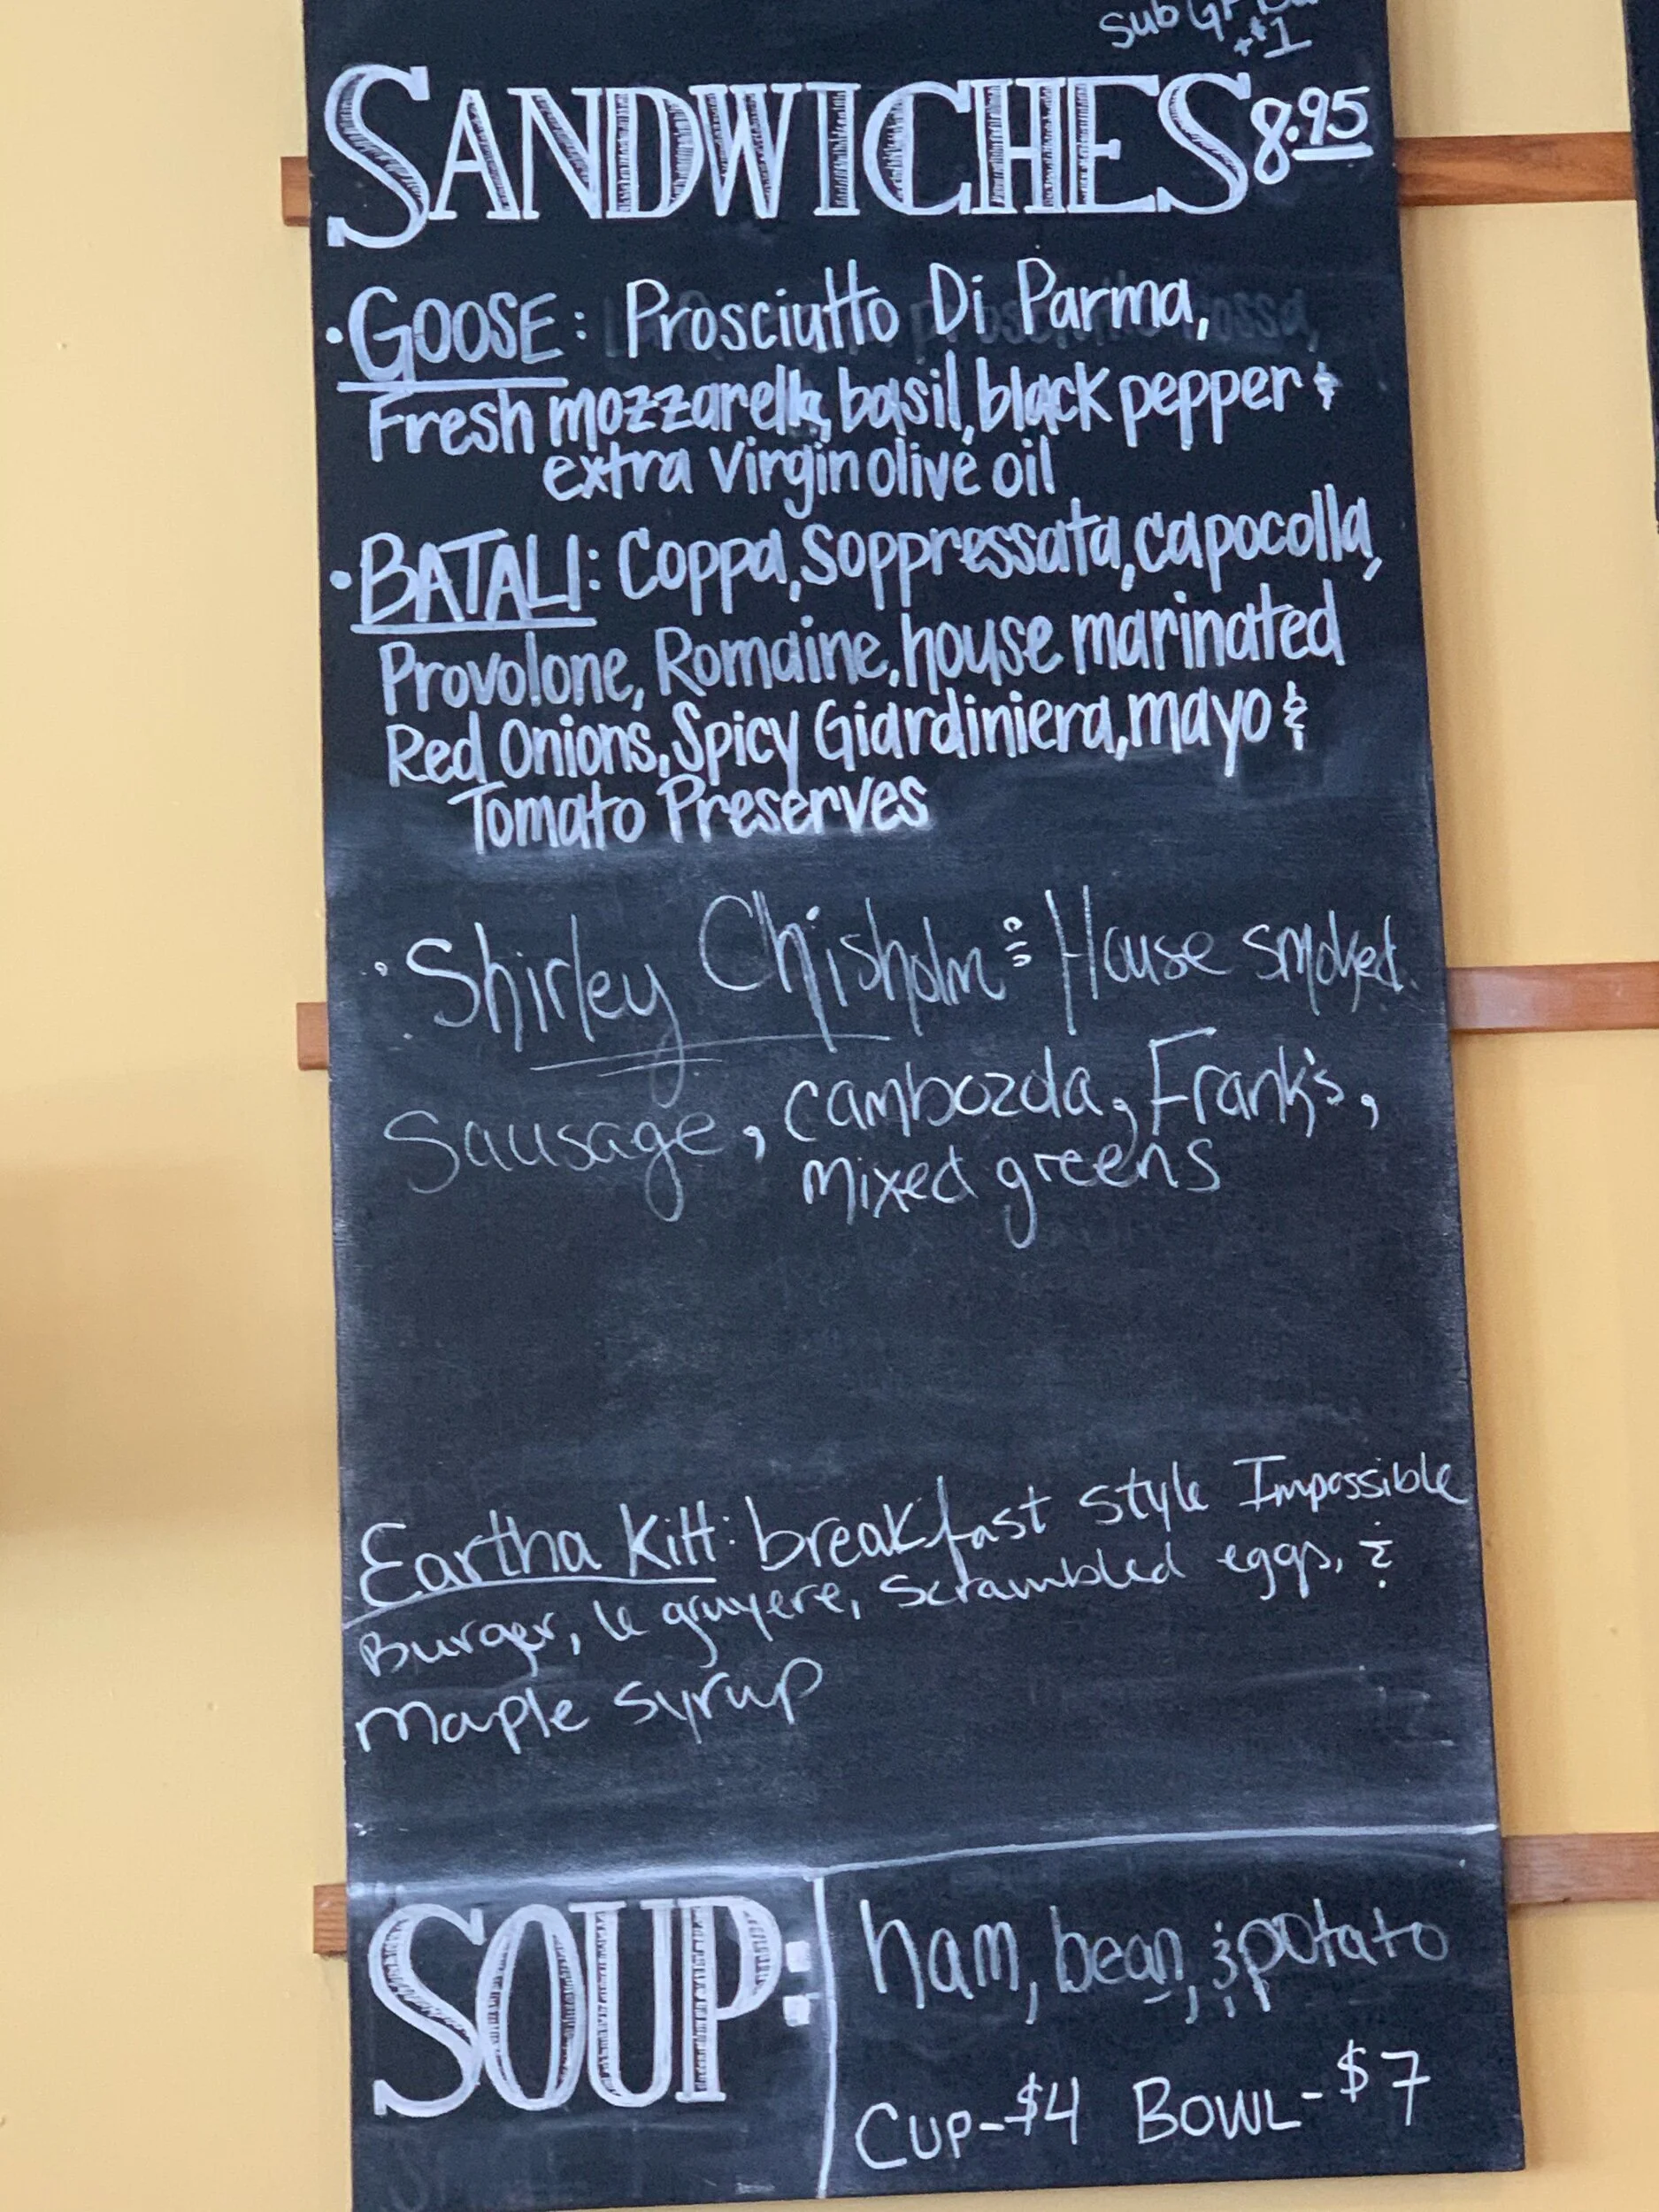 Sub GF
+$1
SANDWICHES 8.95
• GOOSE: Prosciutto Di Parma,
Fresh mozzarella, basil, black pepper &
extra virgin olive oil
• BATALI: Coppa, Soppressata, capocolla,
Provolone, Romaine, house marinated
Red Onions, Spicy Giardiniera, mayo &
Tomato Preserves
• Shirley Chisholm: House smoked
Sausage, cambozda, Frank's,
mixed greens
Eartha Kitt: breakfast style Impossible
Burger, le gruyere, Scrambled eggs, &
Maple syrup
SOUP: ham, bean, & potato
CUP-$4 BOWL-$7